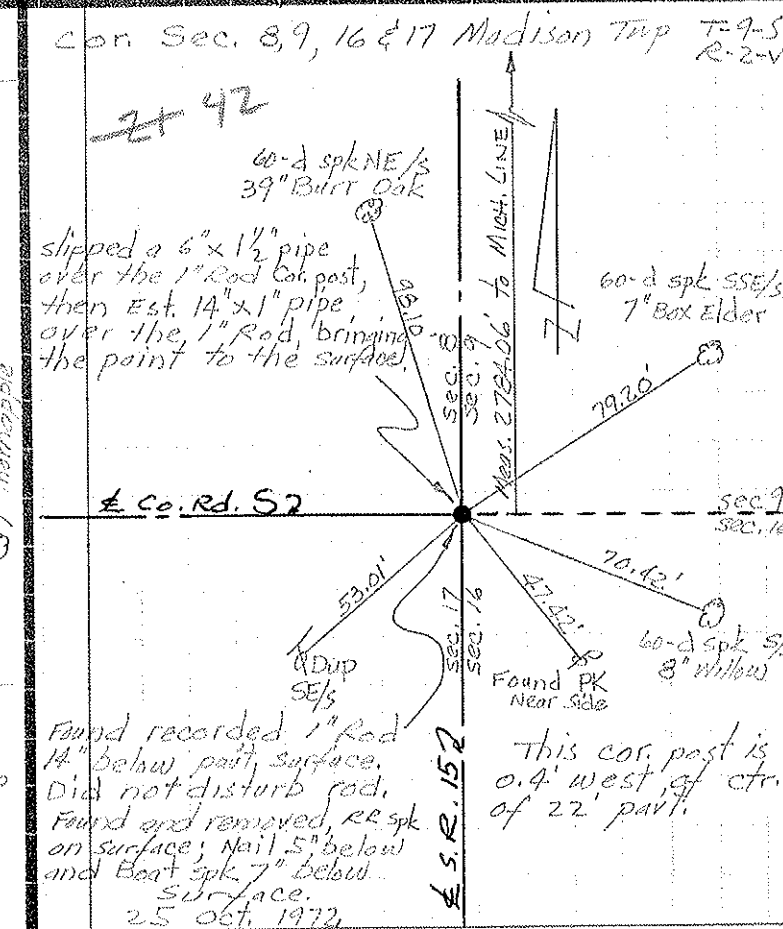 Cor. Sec. 8,9, 16 & 17 Madison Twp T-9-S
R-2-W
21 42
60-d spk NE/s
39" Burr Oak
slipped a 6" x 1½" pipe
over the 1" Rod Cor. post,
then Est. 14" x 1" pipe
over the 1" Rod, bringing
the point to the surface.
98.10
Sec. 8
Sec. 9
Meas. 2784.06' to Mich. LINE
60-d spk SSE/s
7" Box Elder
79.20'
℄ Co. Rd. S2
sec. 9
sec. 16
53.01'
Dup
SE/s
Sec. 17
Sec. 16
47.42'
Found PK
Near Side
70.42'
60-d spk S/s
8" Willow
Found recorded 1" Rod
14" below pavt. surface.
Did not disturb rod.
Found and removed, RR spk
on surface; Nail 5" below
and Boat spk 7" below
surface.
25 Oct. 1972
℄ S.R. 152
This cor. post is
0.4' west of ctr.
of 22' pavt.